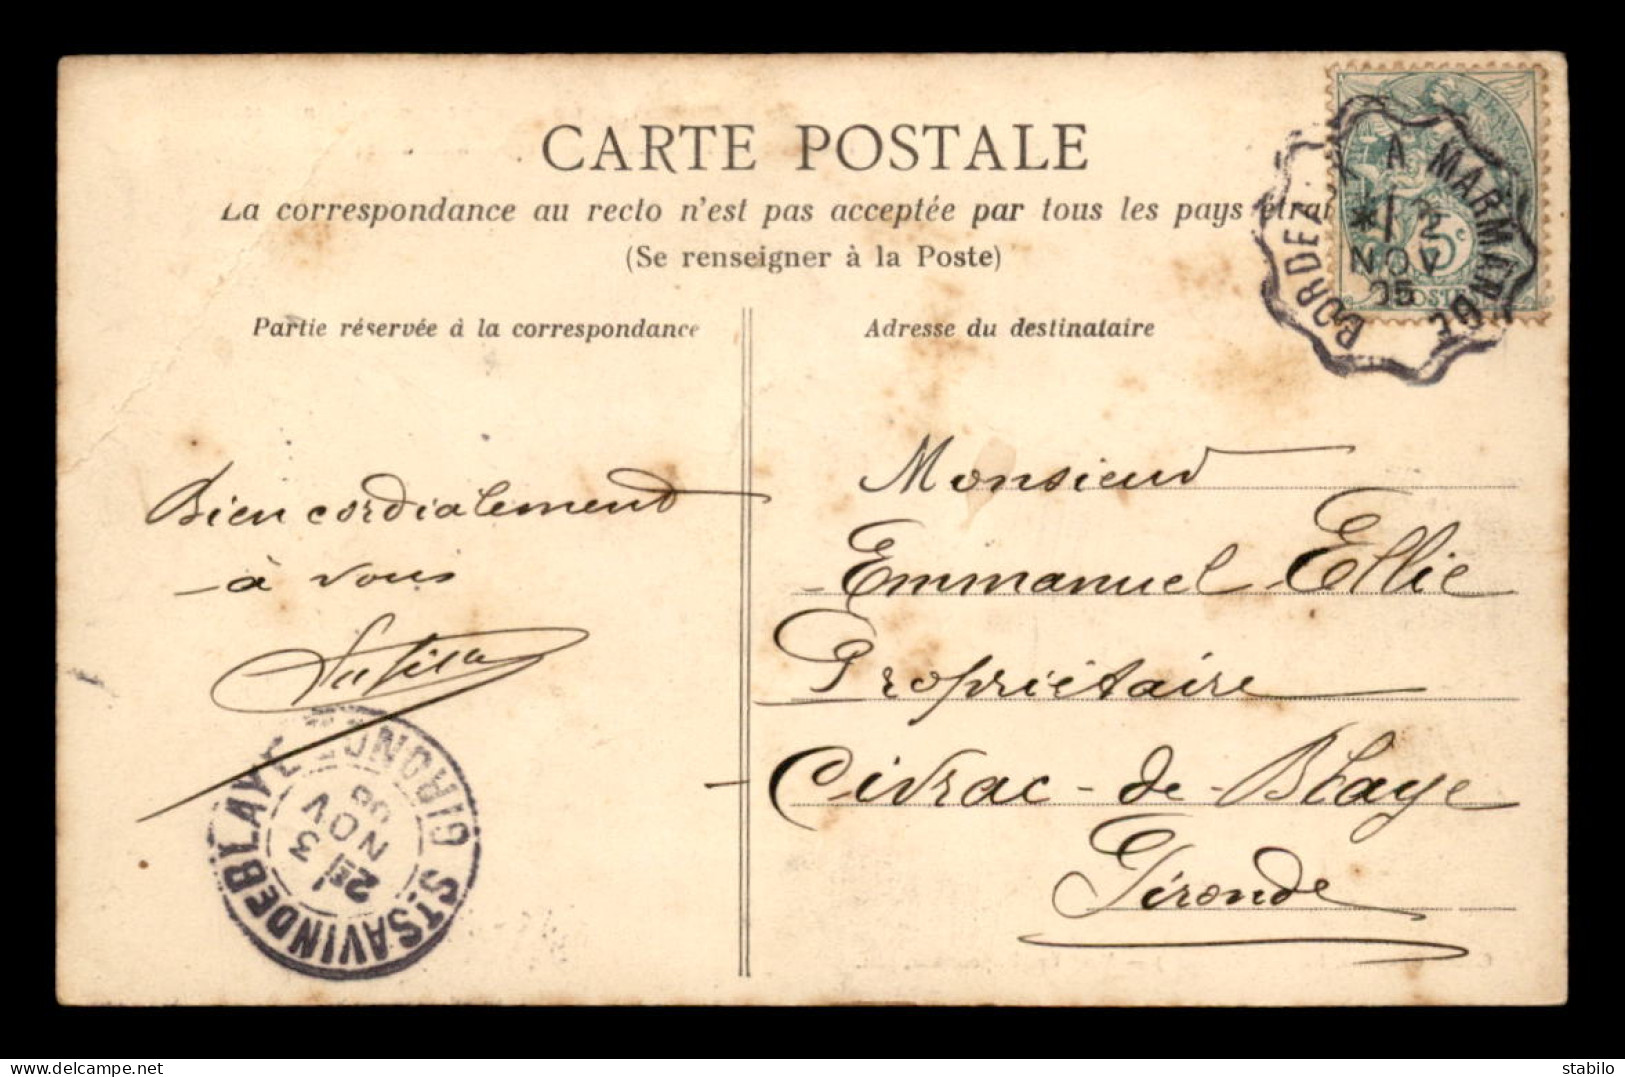 CARTE POSTALE
La correspondance au recto n'est pas acceptée par tous les pays étran
(Se renseigner à la Poste)
Partie réservée à la correspondance
Adresse du destinataire
BORDEAUX A MARMANDE
2
NOV
05
5c
POSTES
Bien cordialement
à vous
Monsieur
Emmanuel Ellie
Propriétaire
Civrac-de-Blaye
Gironde
ST SAVIN DE BLAYE GIRONDE
2E
3
NOV
stabilo